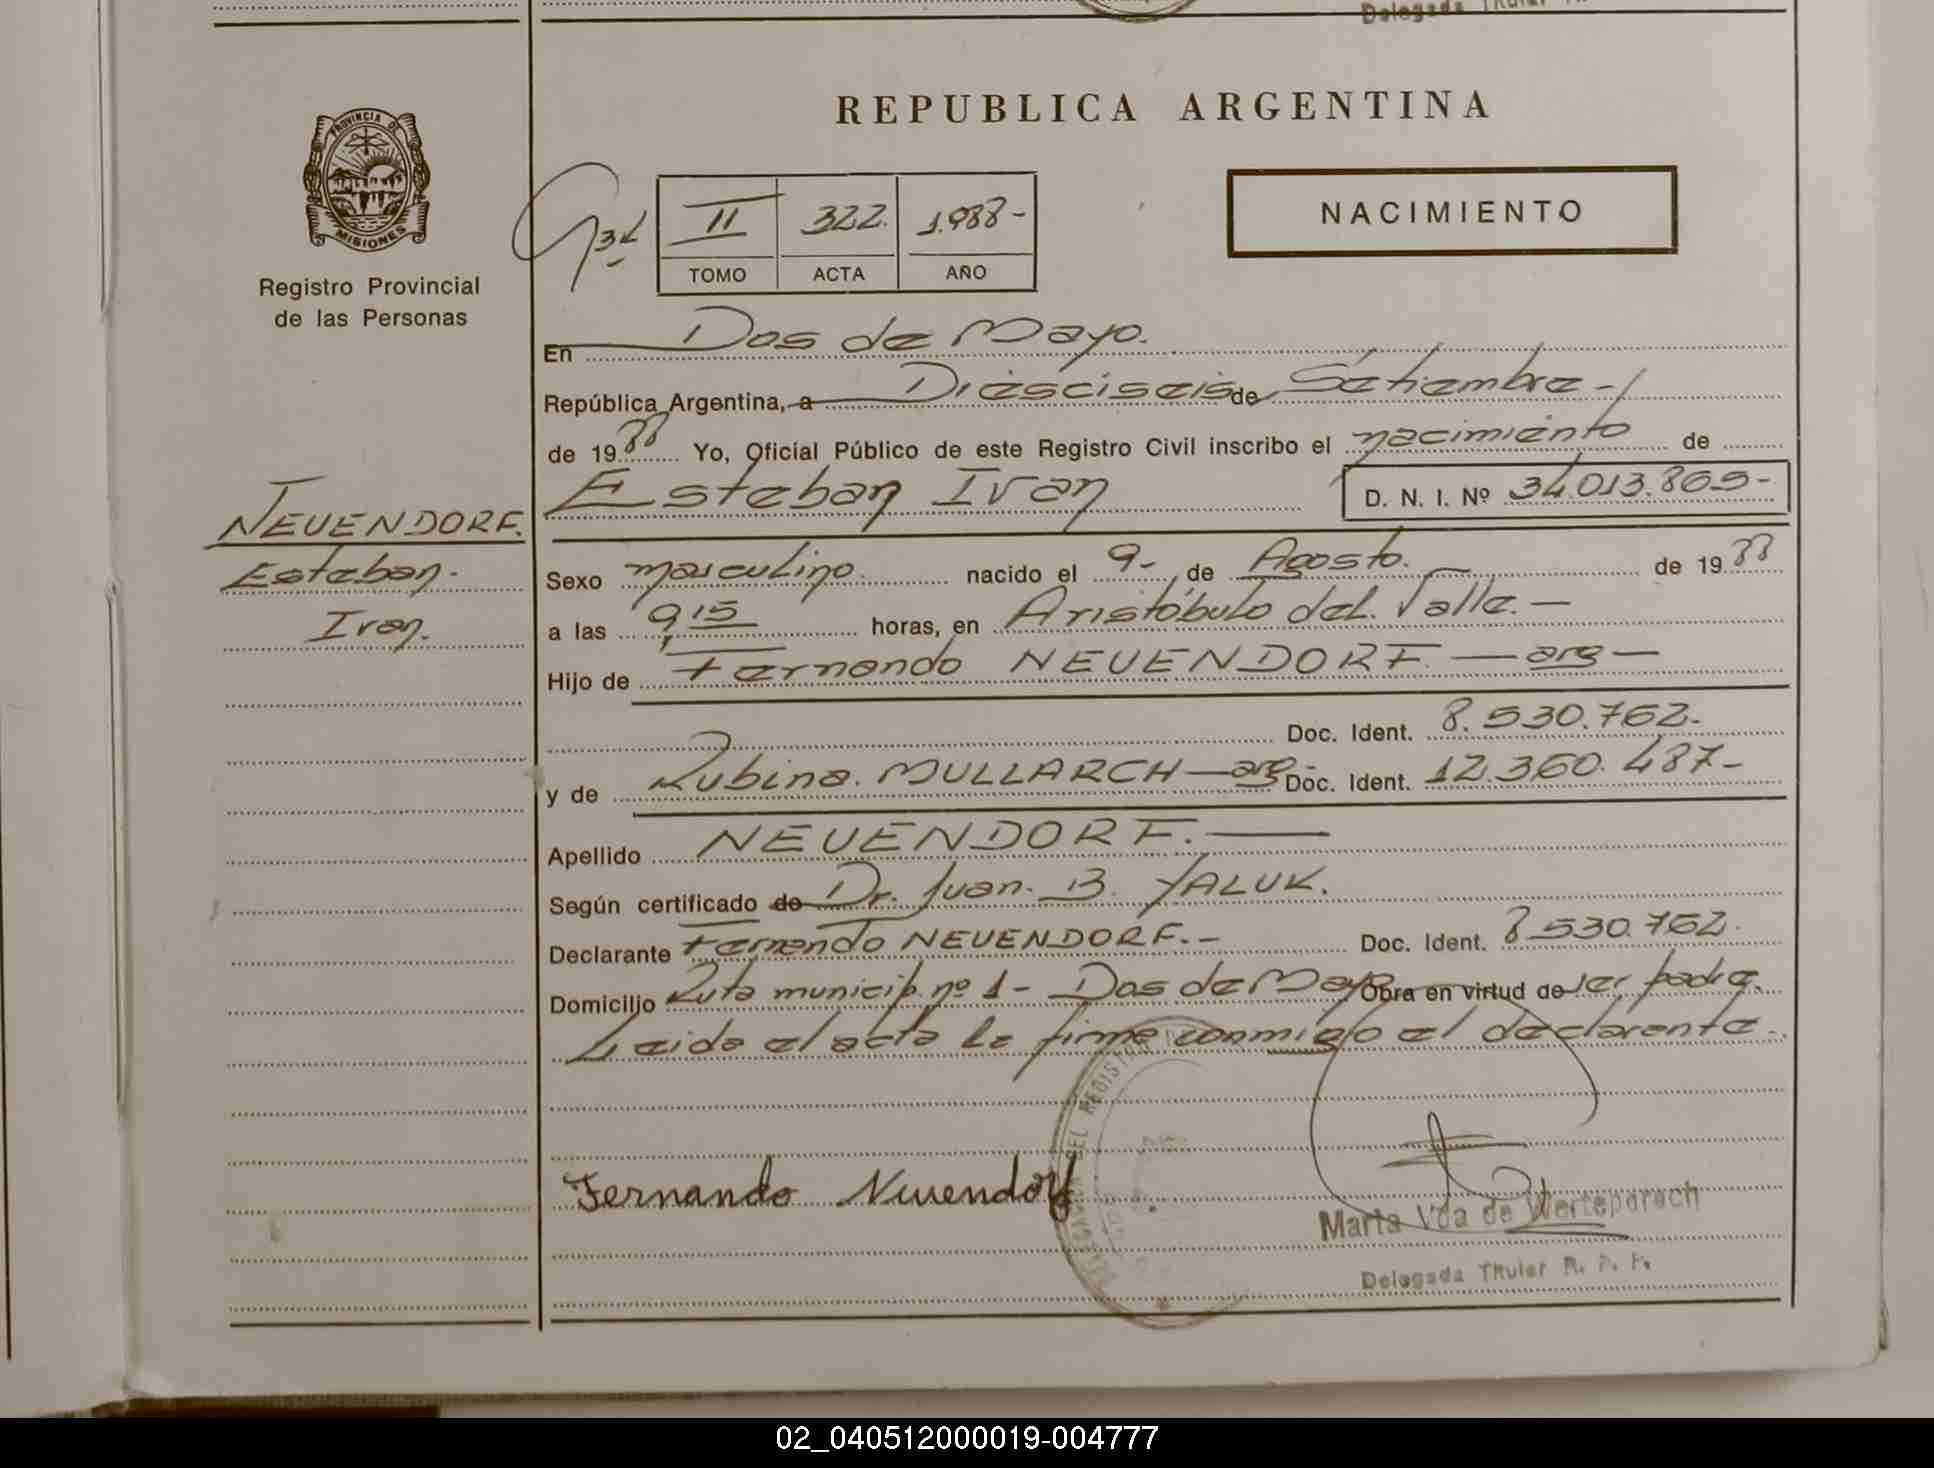 Delegada Titular
REPUBLICA ARGENTINA
PROVINCIA DE
MISIONES
Registro Provincial
de las Personas
II 322. 1.988-
TOMO ACTA AÑO
NACIMIENTO
En Dos de Mayo.
República Argentina, a Diesciseis de Setiembre-
de 1988 Yo, Oficial Público de este Registro Civil inscribo el nacimiento de
Esteban Ivan D. N. I. Nº 34.013.869-
NEUENDORF.
Esteban.
Ivan.
Sexo masculino. nacido el 9- de Agosto. de 1988
a las 9,15 horas, en Aristóbulo del Valle.—
Hijo de Fernando NEUENDORF.—arg—
Doc. Ident. 8.530.762-
y de Rubina. MULLARCH—arg- Doc. Ident. 12.360.487-
Apellido NEUENDORF.—
Según certificado de Dr. Juan. B. YALUK.
Declarante Fernando NEUENDORF.- Doc. Ident. 8.530.762-
Domicilio Ruta municip. nº 1- Dos de Mayo Obra en virtud de ser padre.
Leida el acta la firma conmigo el declarante.
DELEGACION DEL REGISTRO
Fernando Neuendorf
Marta Vda de Werteparech
Delegada Titular R. P. P.
02_040512000019-004777